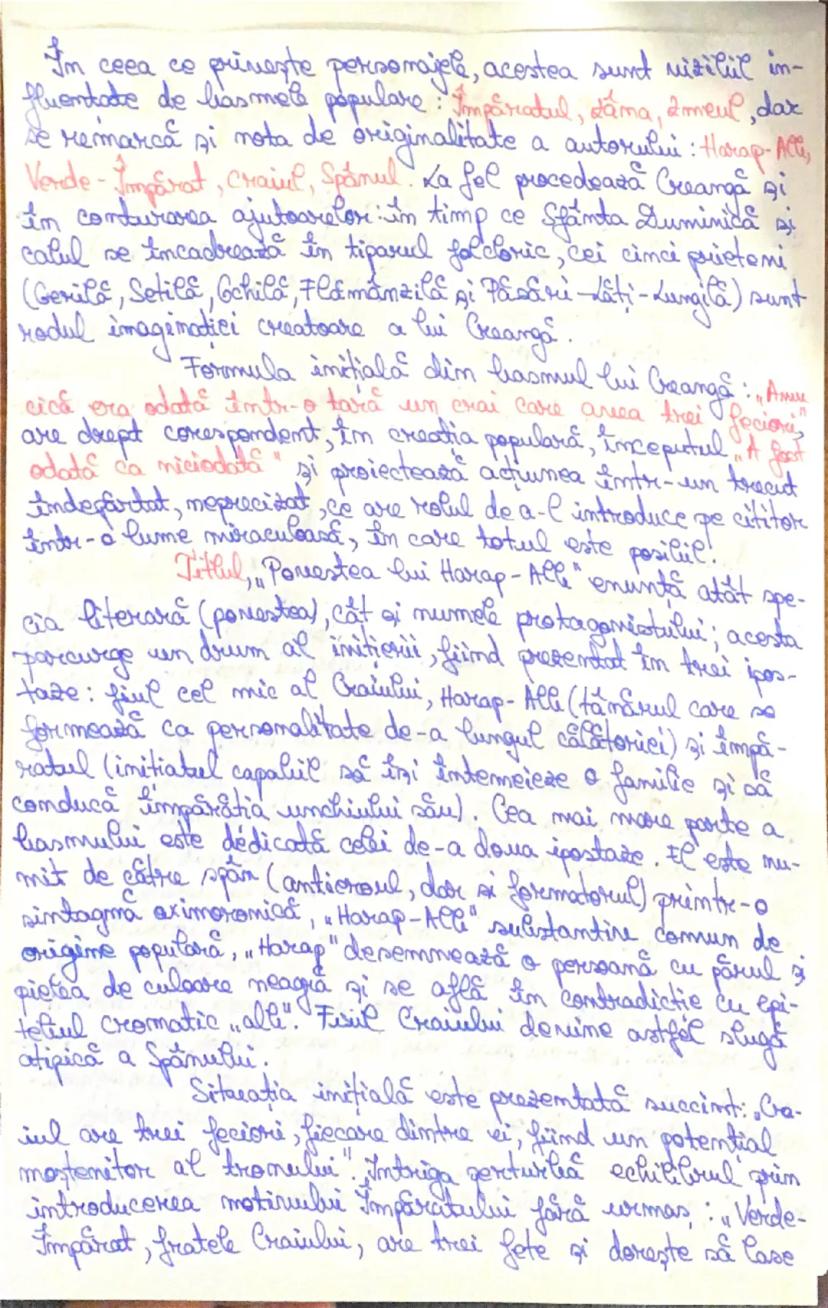 În ceea ce privește personajele, acestea sunt vizibil in-
fluențate de basmele populare: Împăratul, zâna, zmeul, dar
se remarcă și nota de originalitate a autorului: Harap-Alb,
Verde-Împărat, craiul, Spânul. La fel procedează Creangă și
în conturarea ajutoarelor: în timp ce Sfânta Duminică și
calul se încadrează în tiparul folcloric, cei cinci prieteni
(Gerilă, Setilă, Ochilă, Flămânzilă și Păsări-Lăți-Lungilă) sunt
rodul imaginației creatoare a lui Creangă.
Formula inițială din basmul lui Creangă: „Amu
cică era odată într-o țară un crai care avea trei feciori”,
are drept corespondent, în creația populară, începutul „A fost
odată ca niciodată” și proiectează acțiunea într-un trecut
îndepărtat, neprecizat, ce are rolul de a-l introduce pe cititor
într-o lume miraculoasă, în care totul este posibil.
Titlul, „Povestea lui Harap-Alb” enunță atât spe-
cia literară (povestea), cât și numele protagonistului; acesta
parcurge un drum al inițierii, fiind prezentat în trei ipos-
taze: fiul cel mic al Craiului, Harap-Alb (tânărul care se
formează ca personalitate de-a lungul călătoriei) și împă-
ratul (inițiatul capabil să își întemeieze o familie și să
conducă împărăția unchiului său). Cea mai mare parte a
basmului este dedicată celei de-a doua ipostaze. El este nu-
mit de către spân (antieroul, dar și formatorul) printr-o
sintagmă oximoronică, „Harap-Alb” substantiv comun de
origine populară, „Harap” desemnează o persoană cu părul și
pielea de culoare neagră și se află în contradicție cu epi-
tetul cromatic „alb”. Fiul Craiului devine astfel slugă
atipică a Spânului.
Situația inițială este prezentată succint: „Cra-
iul are trei feciori, fiecare dintre ei, fiind un potențial
moștenitor al tronului”. Intriga perturbă echilibrul prin
introducerea motivului Împăratului fără urmaș,: „Verde-
Împărat, fratele Craiului, are trei fete și dorește să lase